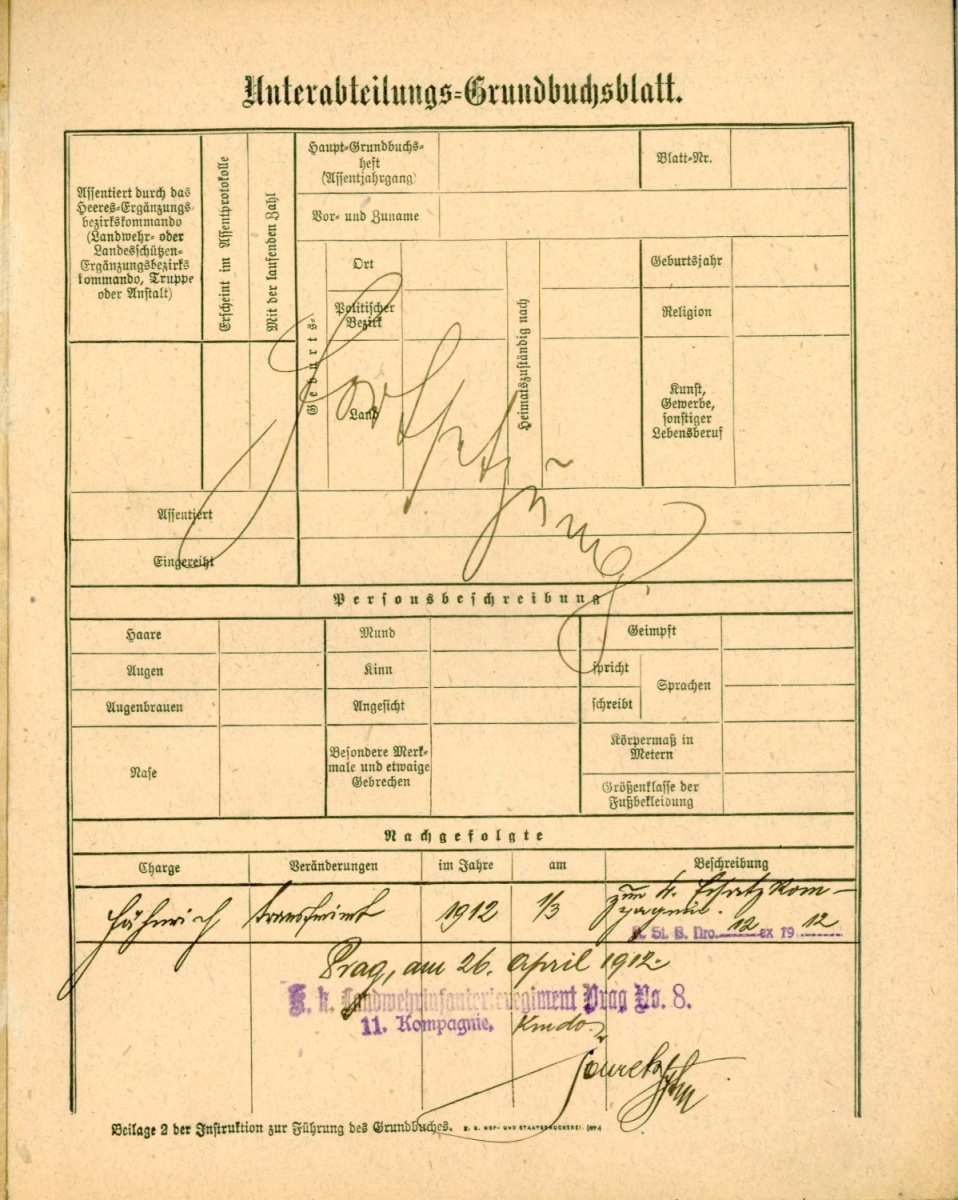 Unterabteilungs-Grundbuchsblatt.
Assentiert durch das
Heeres-Ergänzungs-
bezirkskommando
(Landwehr- oder
Landesschützen-
Ergänzungsbezirks
kommando, Truppe
oder Anstalt)
Erscheint im Assentprotokolle
Mit der laufenden Zahl
Haupt-Grundbuchs-
heft
(Assentjahrgang)
Blatt-Nr.
Vor- und Zuname
Geburts-
Ort
Politischer
Bezirk
Land
Heimatszuständig nach
Geburtsjahr
Religion
Kunst,
Gewerbe,
sonstiger
Lebensberuf
Fortsetzung.
Assentiert
Eingereiht
Personsbeschreibung
Haare
Mund
Geimpft
Augen
Kinn
spricht
Sprachen
Augenbrauen
Angesicht
schreibt
Nase
Besondere Merk-
male und etwaige
Gebrechen
Körpermaß in
Metern
Größenklasse der
Fußbekleidung
Nachgefolgte
Charge
Veränderungen
im Jahre
am
Beschreibung
Fähnrich
transferiert
1912
1/3
zur 4. Ersatzkom-
pagnie.
K. St. B. Nro. 12 ex 19 12
Prag, am 26. April 1912.
K. k. Landwehrinfanterieregiment Prag No. 8.
11. Kompagnie. Kmdo
Beilage 2 der Instruktion zur Führung des Grundbuches.
K. K. HOF- UND STAATSDRUCKEREI.